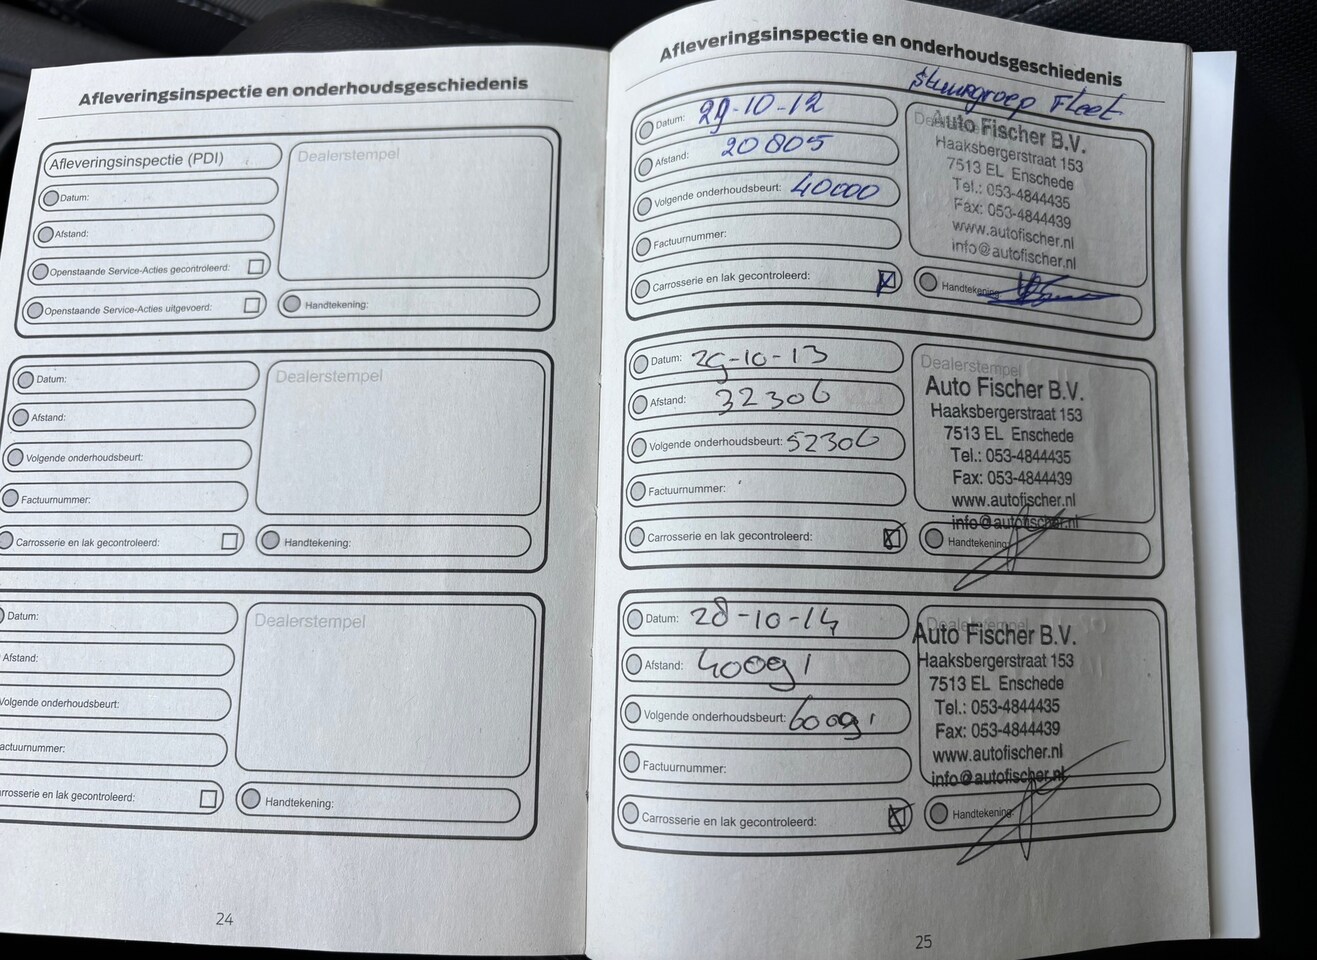 Afleveringsinspectie en onderhoudsgeschiedenis
Afleveringsinspectie (PDI)
Datum:
Afstand:
Openstaande Service-Acties gecontroleerd:
Openstaande Service-Acties uitgevoerd:
Dealerstempel
Handtekening:
Datum:
Afstand:
Volgende onderhoudsbeurt:
Factuurnummer:
Carrosserie en lak gecontroleerd:
Dealerstempel
Handtekening:
Datum:
Afstand:
Volgende onderhoudsbeurt:
actuurnummer:
rrosserie en lak gecontroleerd:
Dealerstempel
Handtekening:
24
Afleveringsinspectie en onderhoudsgeschiedenis
Datum: 29-10-12
Afstand: 20805
Volgende onderhoudsbeurt: 40000
Factuurnummer:
Carrosserie en lak gecontroleerd:
Fleet
Auto Fischer B.V.
Haaksbergerstraat 153
7513 EL Enschede
Tel.: 053-4844435
Fax: 053-4844439
www.autofischer.nl
info@autofischer.nl
Handtekening
Datum: 29-10-13
Afstand: 32306
Volgende onderhoudsbeurt: 52306
Factuurnummer:
Carrosserie en lak gecontroleerd:
Dealerstempel
Auto Fischer B.V.
Haaksbergerstraat 153
7513 EL Enschede
Tel.: 053-4844435
Fax: 053-4844439
www.autofischer.nl
info@autofischer.nl
Handtekening
Datum: 28-10-14
Afstand: 40091
Volgende onderhoudsbeurt: 60091
Factuurnummer:
Carrosserie en lak gecontroleerd:
Dealerstempel
Auto Fischer B.V.
Haaksbergerstraat 153
7513 EL Enschede
Tel.: 053-4844435
Fax: 053-4844439
www.autofischer.nl
info@autofischer.nl
Handtekening
25